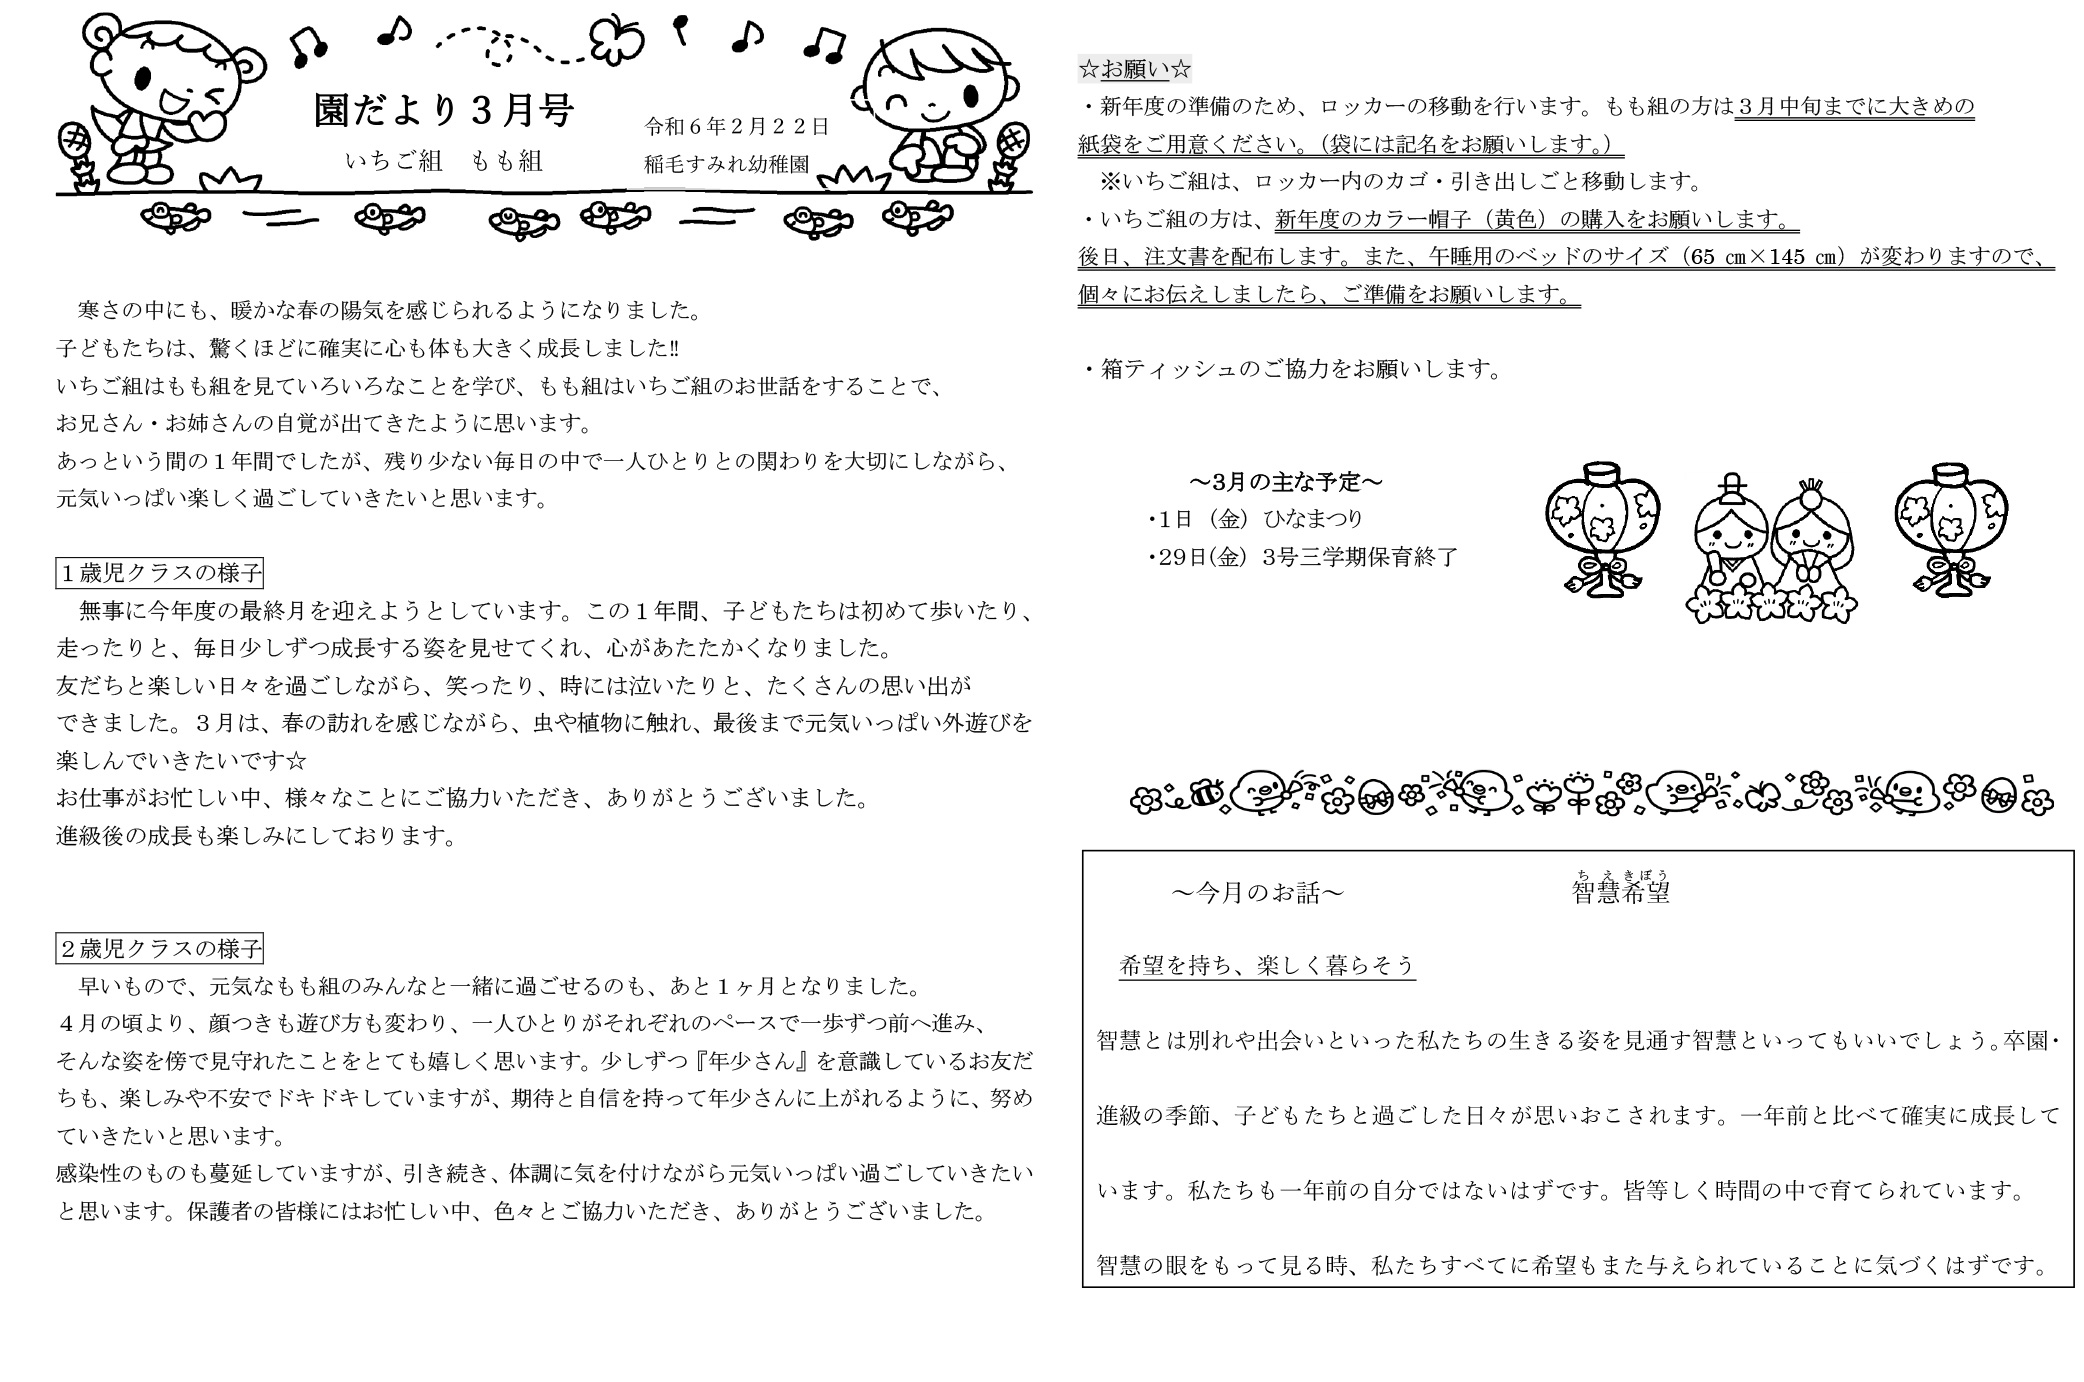 園だより３月号
いちご組　もも組
令和６年２月２２日
稲毛すみれ幼稚園
　寒さの中にも、暖かな春の陽気を感じられるようになりました。
子どもたちは、驚くほどに確実に心も体も大きく成長しました‼
いちご組はもも組を見ていろいろなことを学び、もも組はいちご組のお世話をすることで、
お兄さん・お姉さんの自覚が出てきたように思います。
あっという間の１年間でしたが、残り少ない毎日の中で一人ひとりとの関わりを大切にしながら、
元気いっぱい楽しく過ごしていきたいと思います。
１歳児クラスの様子
　無事に今年度の最終月を迎えようとしています。この１年間、子どもたちは初めて歩いたり、
走ったりと、毎日少しずつ成長する姿を見せてくれ、心があたたかくなりました。
友だちと楽しい日々を過ごしながら、笑ったり、時には泣いたりと、たくさんの思い出が
できました。３月は、春の訪れを感じながら、虫や植物に触れ、最後まで元気いっぱい外遊びを
楽しんでいきたいです☆
お仕事がお忙しい中、様々なことにご協力いただき、ありがとうございました。
進級後の成長も楽しみにしております。
２歳児クラスの様子
　早いもので、元気なもも組のみんなと一緒に過ごせるのも、あと１ヶ月となりました。
４月の頃より、顔つきも遊び方も変わり、一人ひとりがそれぞれのペースで一歩ずつ前へ進み、
そんな姿を傍で見守れたことをとても嬉しく思います。少しずつ『年少さん』を意識しているお友だ
ちも、楽しみや不安でドキドキしていますが、期待と自信を持って年少さんに上がれるように、努め
ていきたいと思います。
感染性のものも蔓延していますが、引き続き、体調に気を付けながら元気いっぱい過ごしていきたい
と思います。保護者の皆様にはお忙しい中、色々とご協力いただき、ありがとうございました。
☆お願い☆
・新年度の準備のため、ロッカーの移動を行います。もも組の方は３月中旬までに大きめの
紙袋をご用意ください。（袋には記名をお願いします。）
　※いちご組は、ロッカー内のカゴ・引き出しごと移動します。
・いちご組の方は、新年度のカラー帽子（黄色）の購入をお願いします。
後日、注文書を配布します。また、午睡用のベッドのサイズ（65 ㎝×145 ㎝）が変わりますので、
個々にお伝えしましたら、ご準備をお願いします。
・箱ティッシュのご協力をお願いします。
～3月の主な予定～
・1日（金）ひなまつり
・29日(金）3号三学期保育終了
～今月のお話～
ちえきぼう
智慧希望
希望を持ち、楽しく暮らそう
智慧とは別れや出会いといった私たちの生きる姿を見通す智慧といってもいいでしょう。卒園・
進級の季節、子どもたちと過ごした日々が思いおこされます。一年前と比べて確実に成長して
います。私たちも一年前の自分ではないはずです。皆等しく時間の中で育てられています。
智慧の眼をもって見る時、私たちすべてに希望もまた与えられていることに気づくはずです。